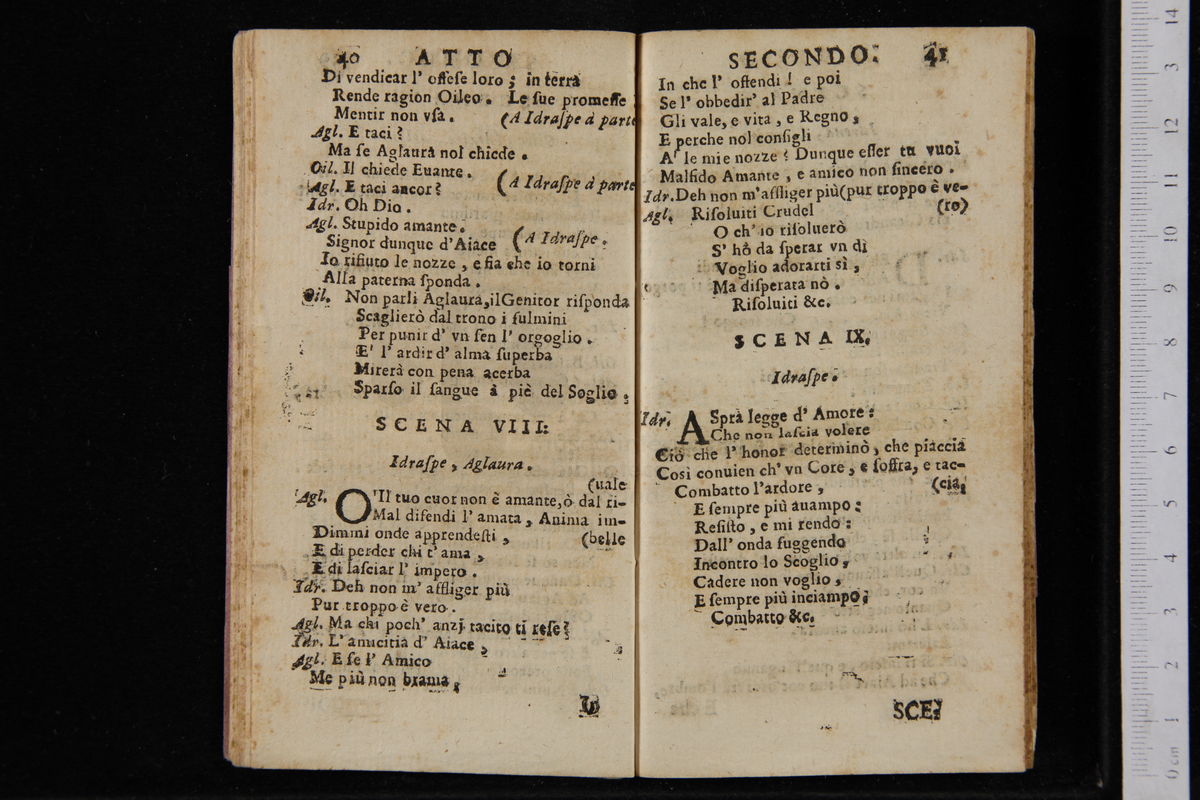 40 ATTO
Di vendicar l' offeſe loro ; in terra
Rende ragion Oileo . Le ſue promeſſe
Mentir non vſa . (A Idraſpe à parte
Agl. E taci ?
Ma ſe Aglaura nol chiede .
Oil. Il chiede Euante .
Agl. E taci ancor ? (A Idraſpe à parte
Idr. Oh Dio .
Agl. Stupido amante .
Signor dunque d'Aiace (A Idraſpe .
Io rifiuto le nozze , e ſia che io torni
Alla paterna ſponda .
Oil. Non parli Aglaura,il Genitor riſponda
Scaglierò dal trono i fulmini
Per punir d' vn ſen l' orgoglio .
E' l' ardir d' alma ſuperba
Mirerà con pena acerba
Sparſo il ſangue à piè del Soglio .
SCENA VIII.
Idraſpe , Aglaura .
(uale
Agl. O'Il tuo cuor non è amante,ò dal ri-
Mal difendi l' amata , Anima im-
Dimmi onde apprendeſti , (belle
E di perder chi t' ama ,
E di laſciar l' impero .
Idr. Deh non m' affliger più
Pur troppo è vero .
Agl. Ma chi poch' anzi tacito ti reſe ?
Idr. L' amicitia d' Aiace ,
Agl. E ſe l' Amico
Me più non brama ,
SECONDO. 41
In che l' offendi ! e poi
Se l' obbedir' al Padre
Gli vale, e vita , e Regno ,
E perche nol conſigli
A' le mie nozze ? Dunque eſſer tu vuoi
Malfido Amante , e amico non ſincero .
Idr. Deh non m'affliger più(pur troppo è ve-
Agl. Riſoluiti Crudel (ro)
O ch' io riſoluerò
S' hò da ſperar vn dì
Voglio adorarti sì ,
Ma diſperata nò .
Riſoluiti &c.
SCENA IX.
Idraſpe .
Idr. ASprà legge d' Amore :
Che non laſcia volere
Ciò che l' honor determinò , che piaccia
Così conuien ch' vn Core , e ſoffra, e tac-
Combatto l'ardore , (cia,
E ſempre più auampo :
Reſiſto , e mi rendo :
Dall' onda fuggendo
Incontro lo Scoglio ,
Cadere non voglio ,
E ſempre più inciampo ;
Combatto &c.
SCE-